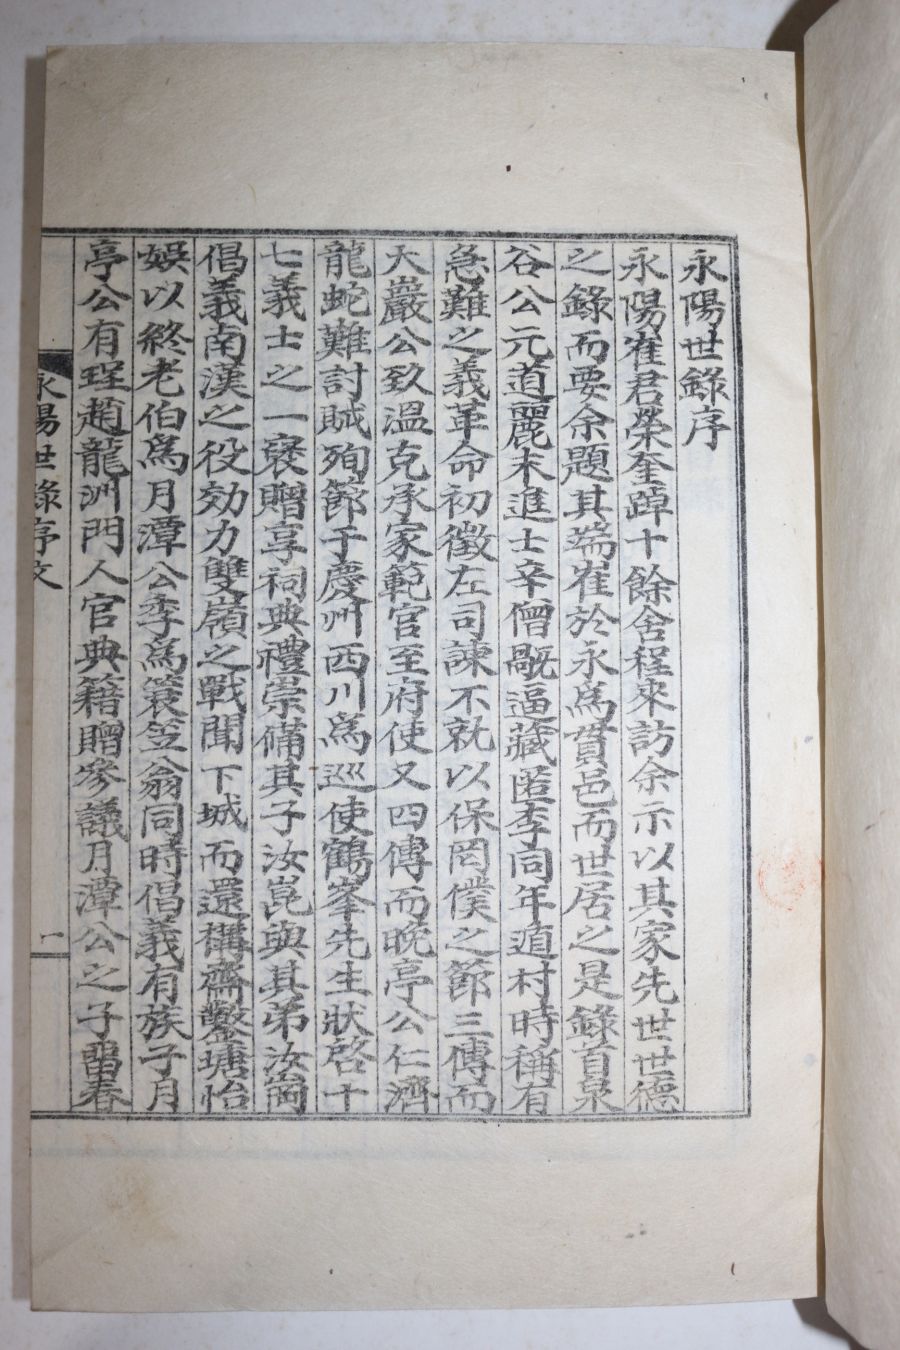 永陽世錄序
永陽崔君榮奎踔十餘舍程來訪余示以其家先世世德
之錄而要余題其端崔於永爲貫邑而世居之是錄首泉
谷公元道麗末進士辛僧旽逼藏匿李同年遁村時稱有
急難之義革命初徵左司諫不就以保罔僕之節三傳而
大巖公致溫克承家範官至府使又四傳而晩亭公仁濟
龍蛇難討賊殉節于慶州西川爲巡使鶴峯先生狀啓十
七義士之一褒贈享祠典禮崇備其子汝崑與其弟汝崗
倡義南漢之役効力雙嶺之戰聞下城而還構齋鑿塘怡
娛以終老伯爲月潭公季爲簑笠翁同時倡義有族子月
亭公有珵趙龍洲門人官典籍贈參議月潭公之子留春
永陽世錄序文
一